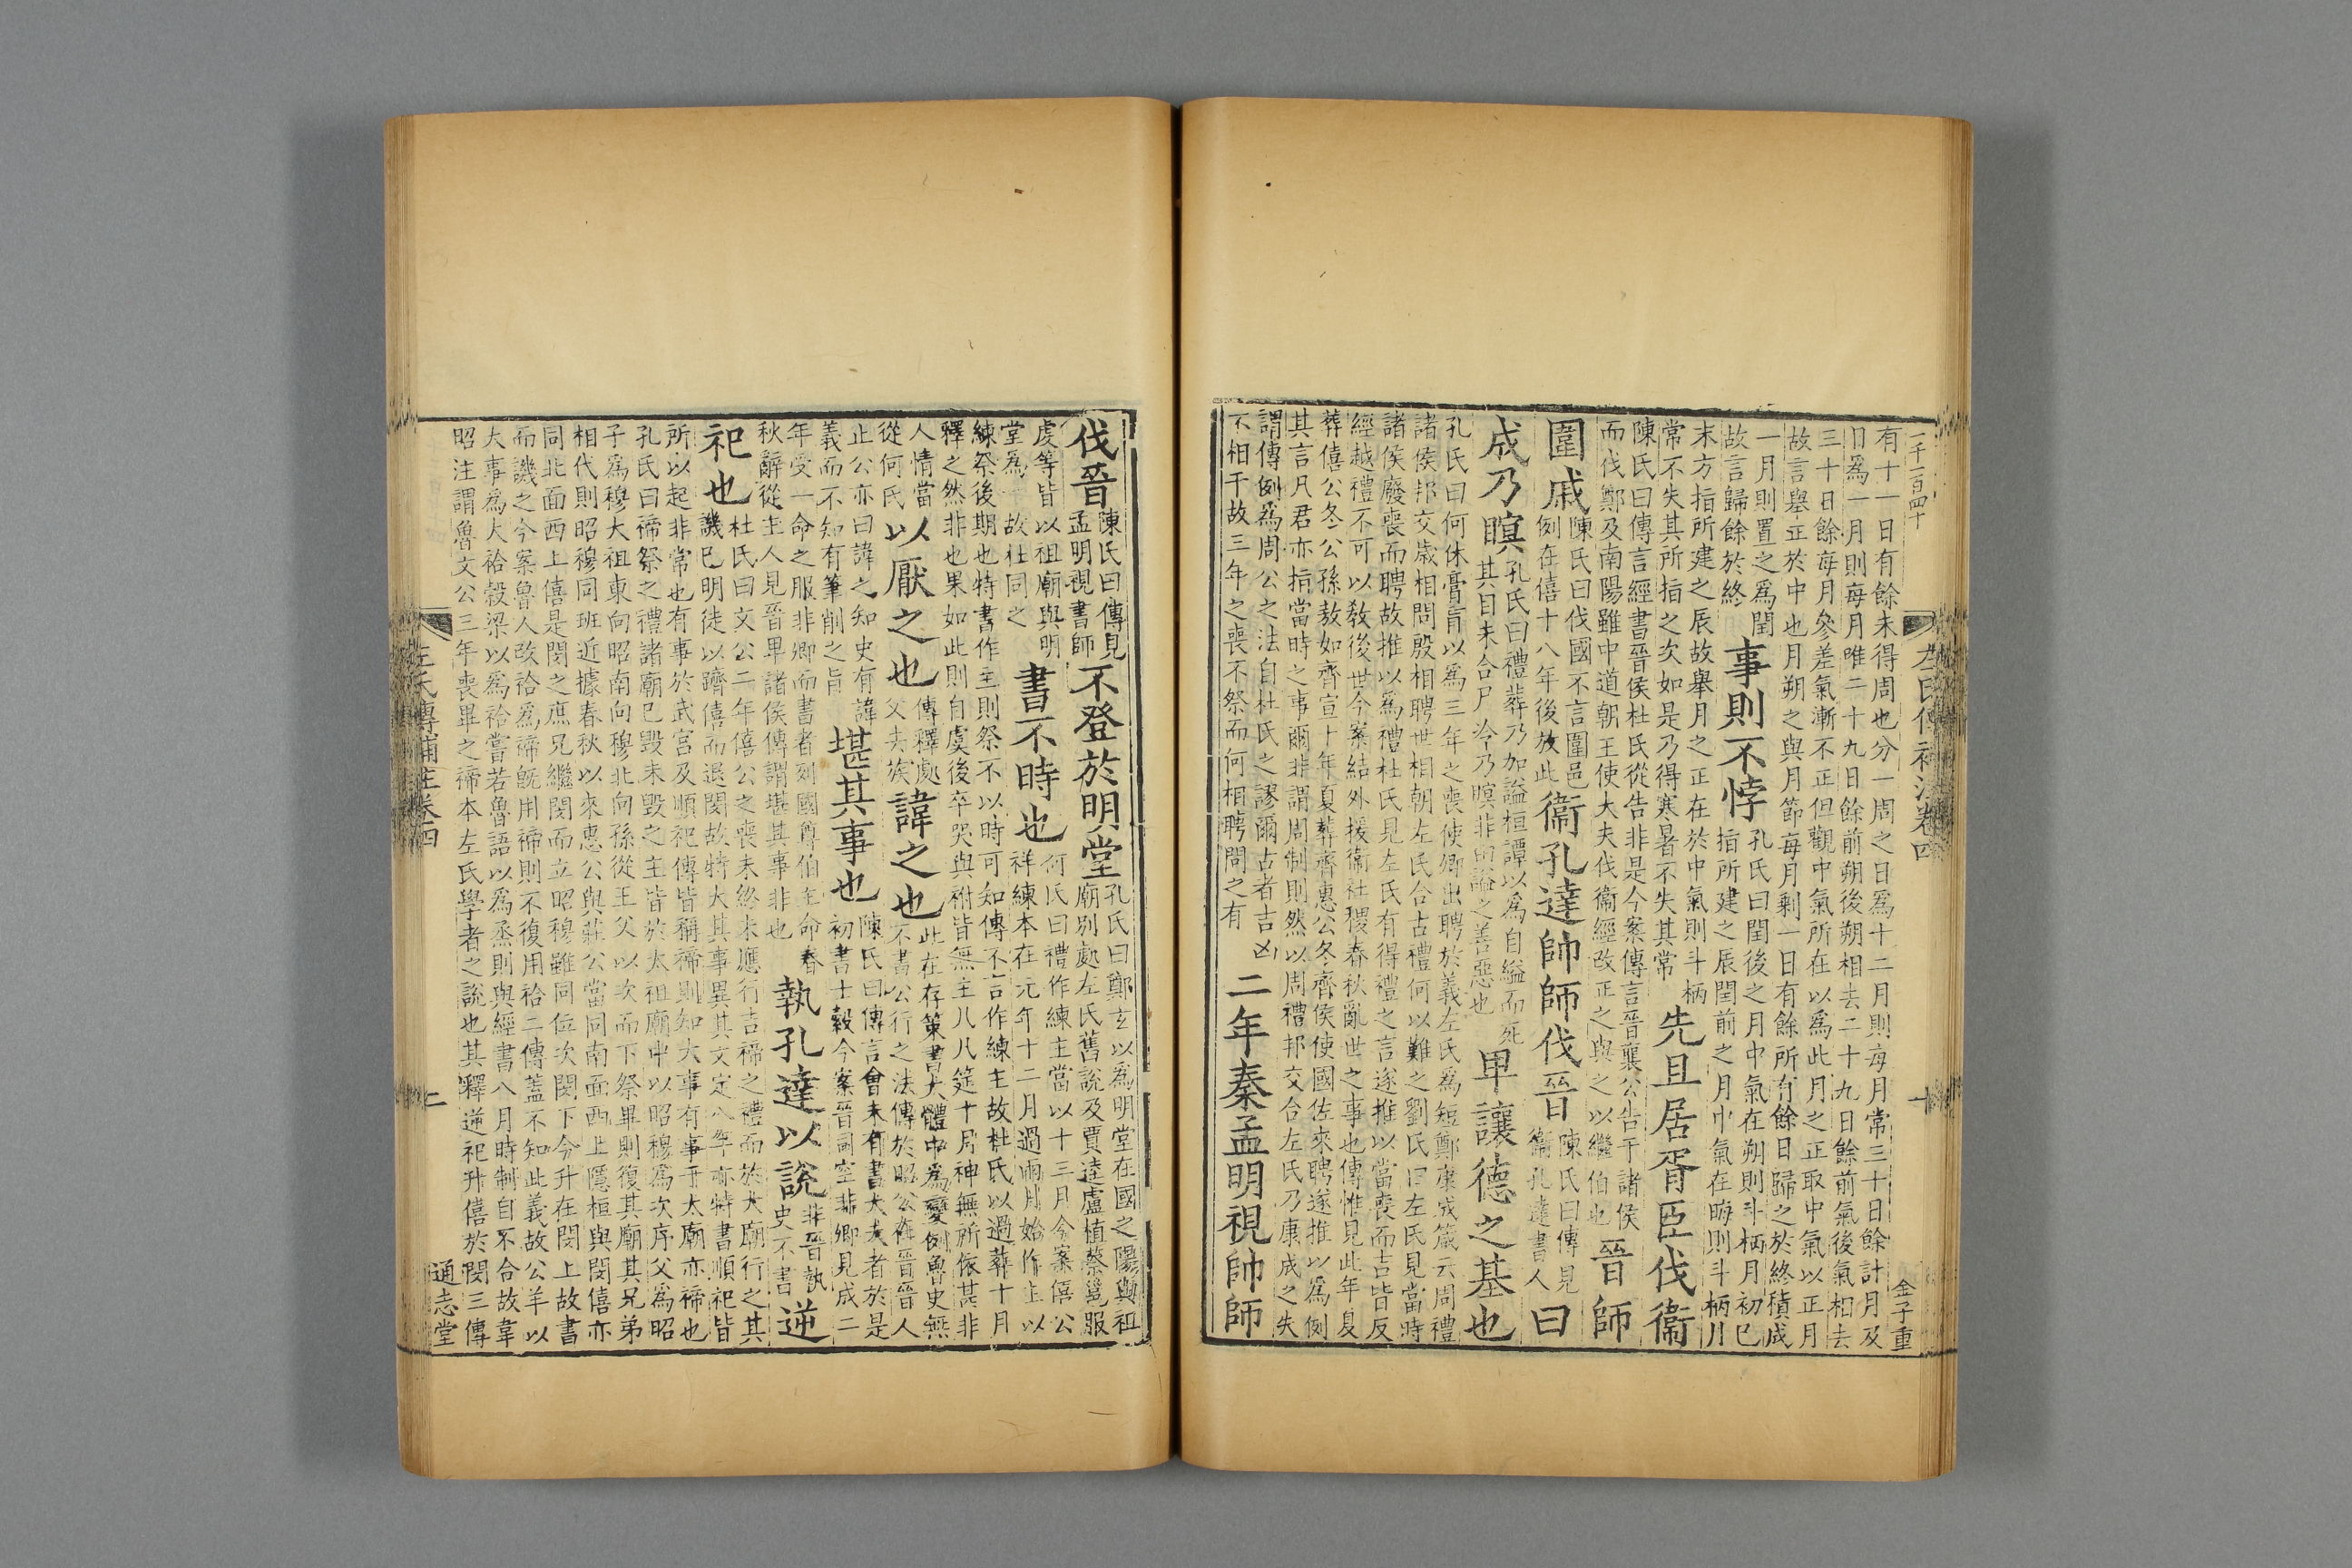 一千一百四十
左氏傳補注卷四
十
金子重
有十一日有餘未得周也分一周之日爲十二月則每月常三十日餘計月及
日爲一月則每月唯二十九日餘前朔後朔相去二十九日餘前氣後氣相去
三十日餘每月參差氣漸不正但觀中氣所在以爲此月之正取中氣以正月
故言舉正於中也月朔之與月節每月剩一日有餘所有餘日歸之於終積成
一月則置之爲閏
故言歸餘於終
事則不悖
孔氏曰閏後之月中氣在朔則斗柄月初巳
指所建之辰閏前之月中氣在晦則斗柄月
末方指所建之辰故舉月之正在於中氣則斗柄
常不失其所指之次如是乃得寒暑不失其常
先且居胥臣伐衞
陳氏曰傳言經書晉侯杜氏從告非是今案傳言晉襄公告于諸侯
而伐鄭及南陽雖中道朝王使大夫伐衞經改正之與之以繼伯也
晉師
圍戚
陳氏曰伐國不言圍邑
例在僖十八年後放此
衞孔達帥師伐晉
陳氏曰傳見
衞孔達書人
曰
成乃瞑
孔氏曰禮葬乃加謚桓譚以爲自縊而死
其目未合尸冷乃瞑非由謚之善惡也
卑讓德之基也
孔氏曰何休膏肓以爲三年之喪使卿出聘於義左氏爲短鄭康成箴云周禮
諸侯邦交歲相問殷相聘世相朝左氏合古禮何以難之劉氏曰左氏見當時
諸侯廢喪而聘故推以爲禮杜氏見左氏有得禮之言遂推以當喪而吉皆反
經越禮不可以敎後世今案結外援衞社稷春秋亂世之事也傳惟見此年夏
葬僖公冬公孫敖如齊宣十年夏葬齊惠公冬齊侯使國佐來聘遂推以爲例
其言凡君亦指當時之事爾非謂周制則然以周禮邦交合左氏乃康成之失
謂傳例爲周公之法自杜氏之謬爾古者吉凶
不相干故三年之喪不祭而何相聘問之有
二年秦孟明視帥師
伐晉
陳氏曰傳見
孟明視書師
不登於明堂
孔氏曰鄭玄以爲明堂在國之陽與祖
廟別處左氏舊說及賈逵盧植蔡邕服
虔等皆以祖廟與明
堂爲一故杜同之
書不時也
何氏曰禮作練主當以十三月今案僖公
祥練本在元年十二月過兩月始作主以
練祭後期也特書作主則祭不以時可知傳不言作練主故杜氏以過葬十月
釋之然非也果如此則自虞後卒哭與祔皆無主凡八筵十月神無所依甚非
人情當
從何氏
以厭之也
傳釋處
父去族
諱之也
此在存策書大體中爲變例魯史無
不書公行之法傳於昭公葬晉晉人
止公亦曰諱之知史有諱
義而不知有筆削之旨
堪其事也
陳氏曰傳言會未有書大夫者於是
初書士縠今案晉司空非卿見成二
年受一命之服非卿而書者列國尊伯主命春
秋辭從主人見晉畢諸侯傳謂堪其事非也
執孔達以說
非晉執
史不書
逆
祀也
杜氏曰文公二年僖公之喪未終未應行吉禘之禮而於大廟行之其
譏巳明徒以躋僖而退閔故特大其事異其文定八年亦特書順祀皆
所以起非常也有事於武宮及順祀傳皆稱禘則知大事有事于太廟亦禘也
孔氏曰禘祭之禮諸廟巳毀未毀之主皆於太祖廟中以昭穆爲次序父爲昭
子爲穆大祖東向昭南向穆北向孫從王父以次而下祭畢則復其廟其兄弟
相代則昭穆同班近據春秋以來惠公與莊公當同南面西上隱桓與閔僖亦
同北面西上僖是閔之庶兄繼閔而立昭穆雖同位次閔下今升在閔上故書
而譏之今案魯人改祫爲禘旣用禘則不復用祫二傳蓋不知此義故公羊以
大事爲大祫穀梁以爲祫嘗若魯語以爲烝則與經書八月時制自不合故韋
昭注謂魯文公三年喪畢之禘本左氏學者之說也其釋逆祀升僖於閔三傳
左氏傳補注卷四
通志堂